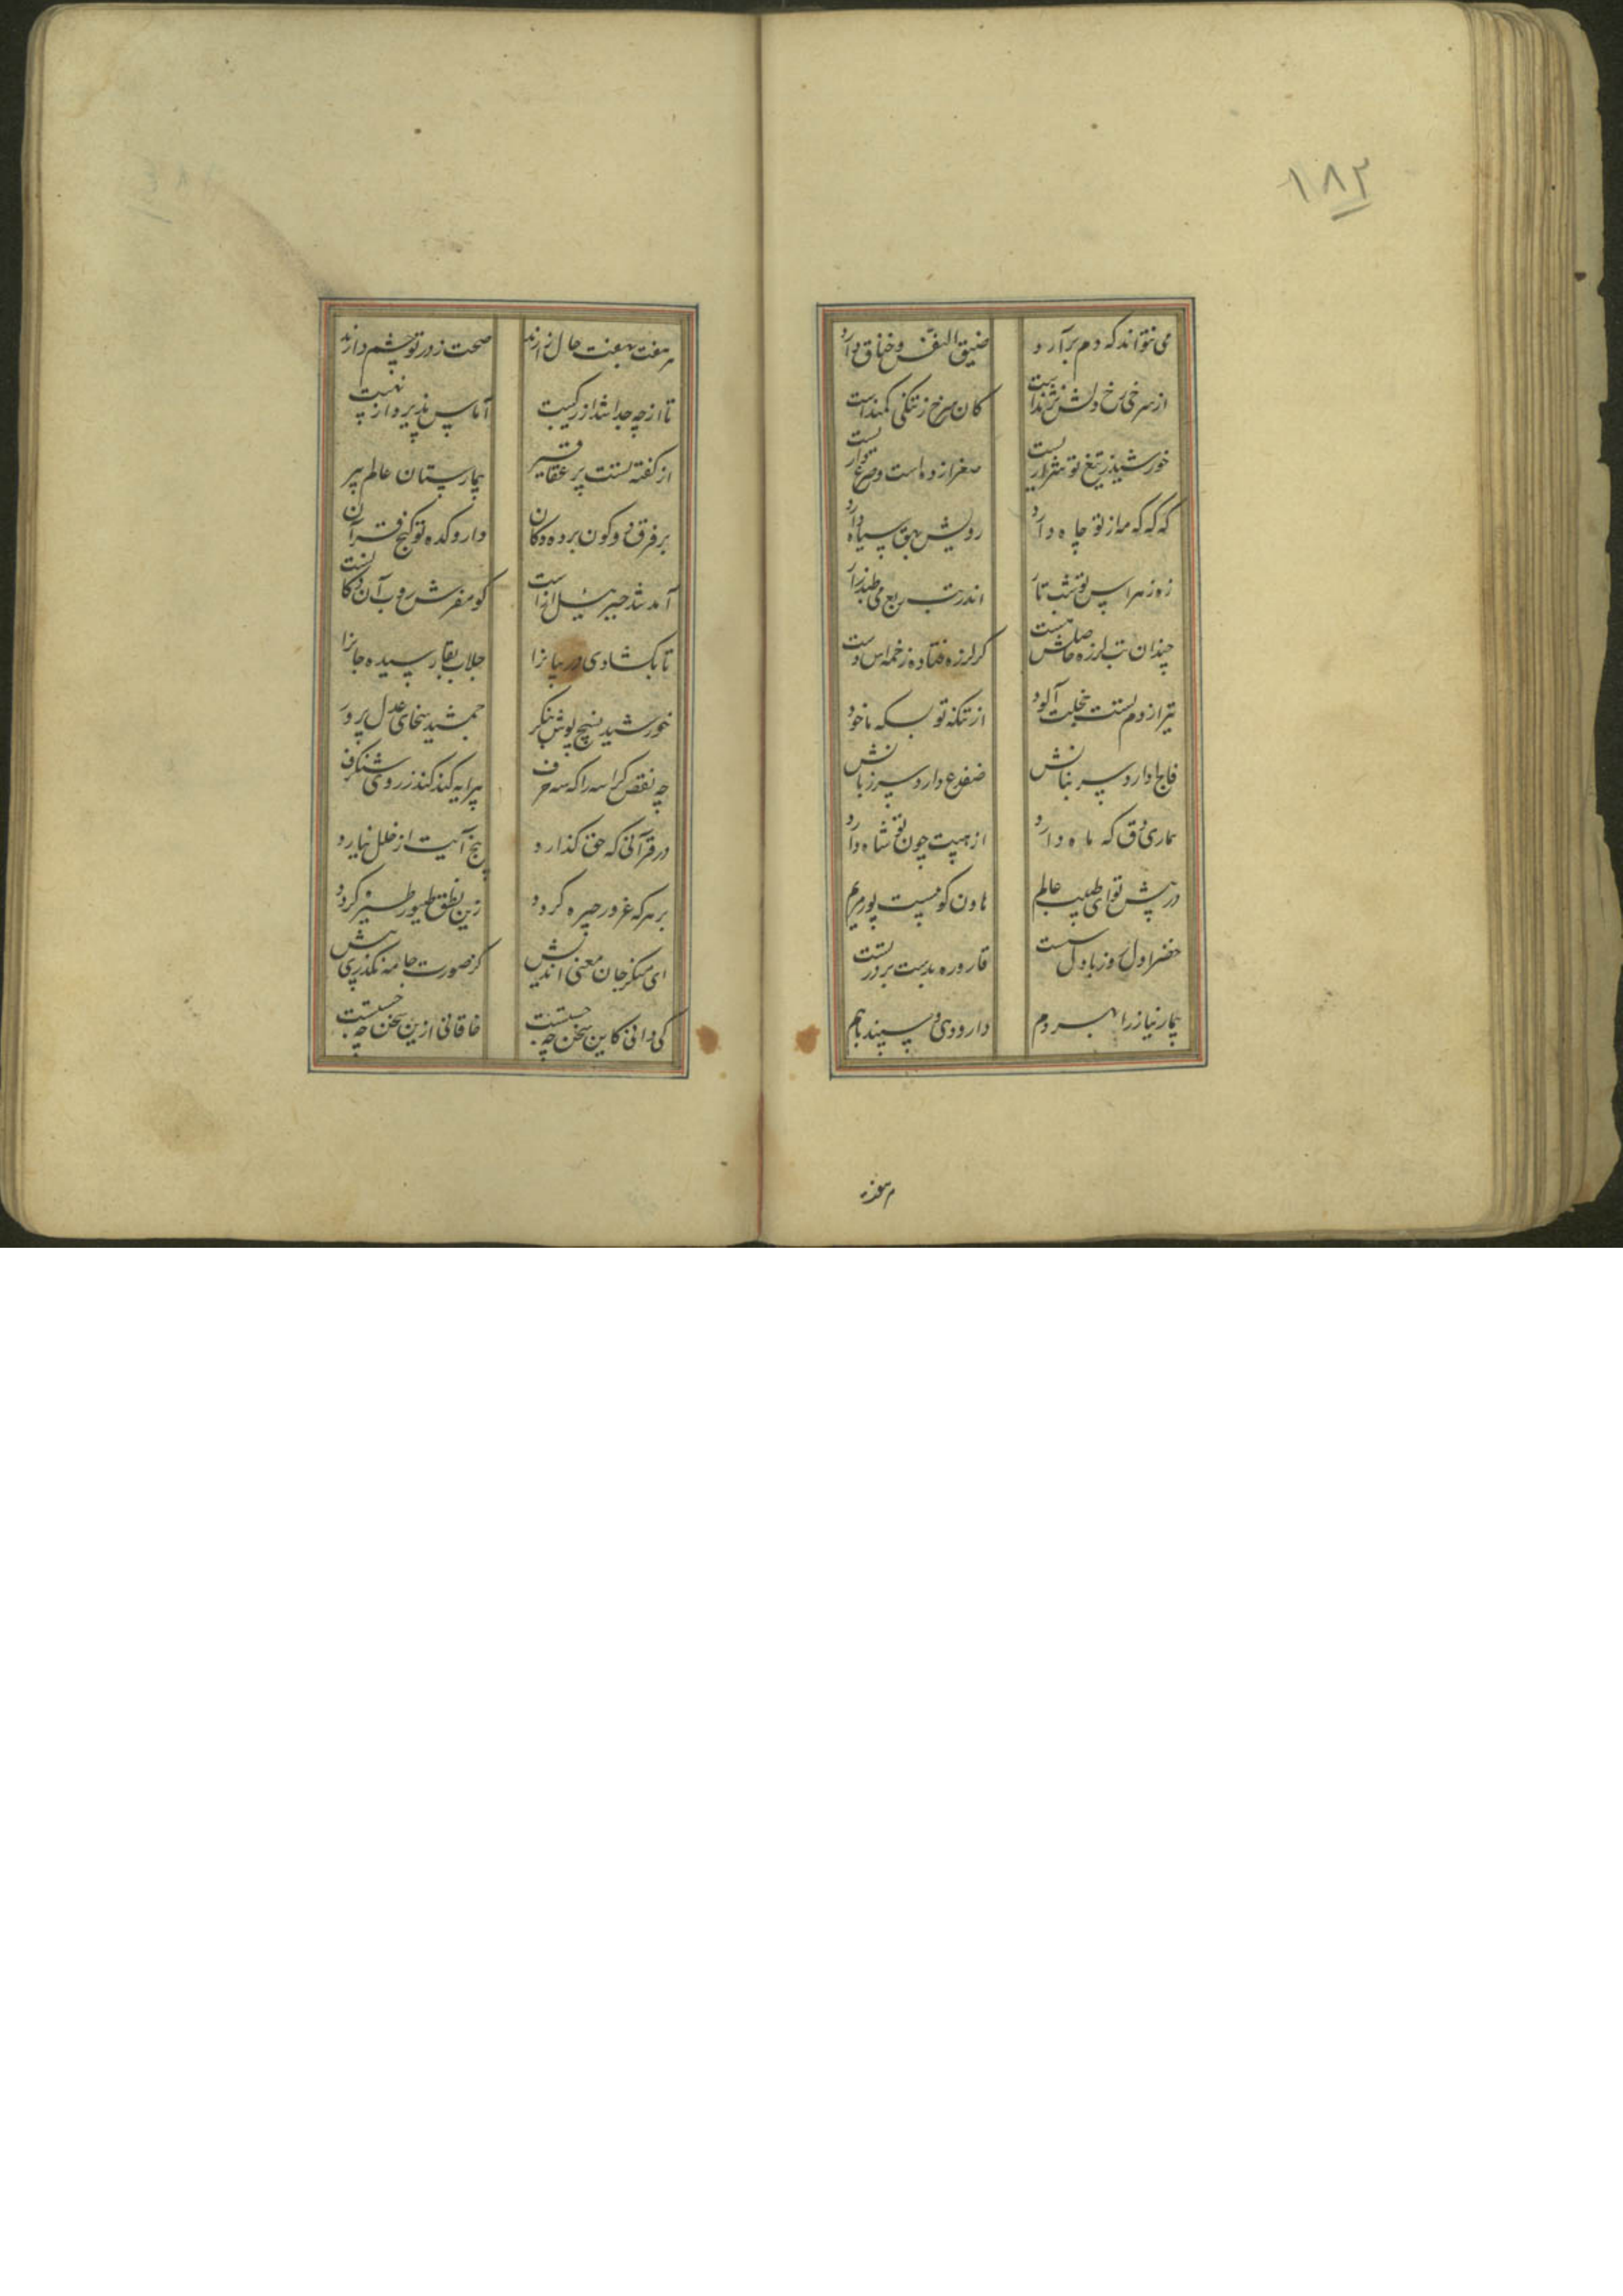 ۱۸۳
می نتواند که دم برآرد
ضیق النفس و خناق دارد
از سرخی رخ دلش نژنداست
کان سرخ ز تنگی کمنداست
خورشید ز تیغ تو
صفرا زده است و
که که که ماز تو جاه دارد
رویش بهق سیاه دارد
زه زهراس تو شب تار
اندر تب ربع می
چندان تب لرزه حاصلش هست
کز لرزه فتاده زخمه‌اش از دست
تیر از دم تست خجلت آلود
از تکنه تو بسکه ما خود
فالج دارد سر بنانش
ضفدع دارد سر زبانش
بیماری دق که ماه دارد
از هیبت چون تو شاه دارد
در پیش تو ای طبیب عالم
هاون کو کیست پور مریم
خضر اول روز بادل سست
قاروره بدست بر در تست
بیمار نیاز را بهر دم
دارو دی و سپند باهم
هر هفت
هر هفت بهفت حال نژارند
صحت ز در تو چشم دارند
تا از چه جدا شد از رکیبت
آماس پذیر واز نهیبت
از گفته تست پر عقاقیر
بیمارستان عالم پیر
بر فرق دو کون برده دکان
داروکده تو گنج قرآن
آمد شد جبرئیل از آنست
کو مفرش روب آن دکانست
تا بگشادی در بیانرا
جلاب بقا رسیده جانرا
خورشید نسیج پوش بنگر
جمشید سخای عدل پرور
چه نقص کراسه را که سه حرف
پیرایه کند کند ز روی شنگرف
در قرآنی که حق گذارد
پنج آیت از خلل نیارد
بر هر که غرور چیره گردد
زین نطق طیور طیره گردد
ای منکر جان معنی اندیش
کز صورت جامه نگذری بیش
کی دانی کاین سخن چه جستست
خاقانی ازین سخن چه جستست